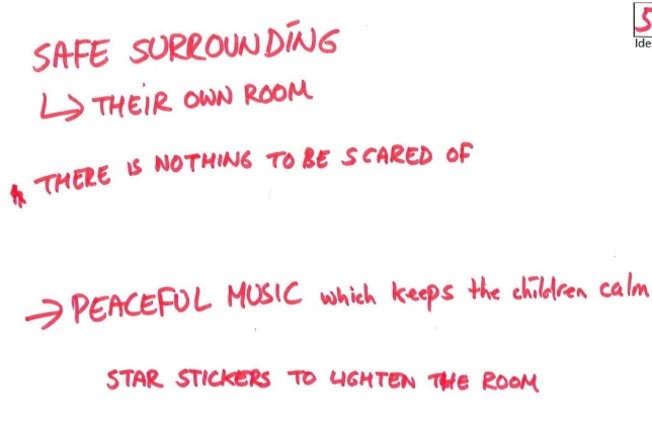 5
Ide
SAFE SURROUNDING
↳ THEIR OWN ROOM
THERE IS NOTHING TO BE SCARED OF
→ PEACEFUL MUSIC which keeps the children calm
STAR STICKERS TO LIGHTEN THE ROOM